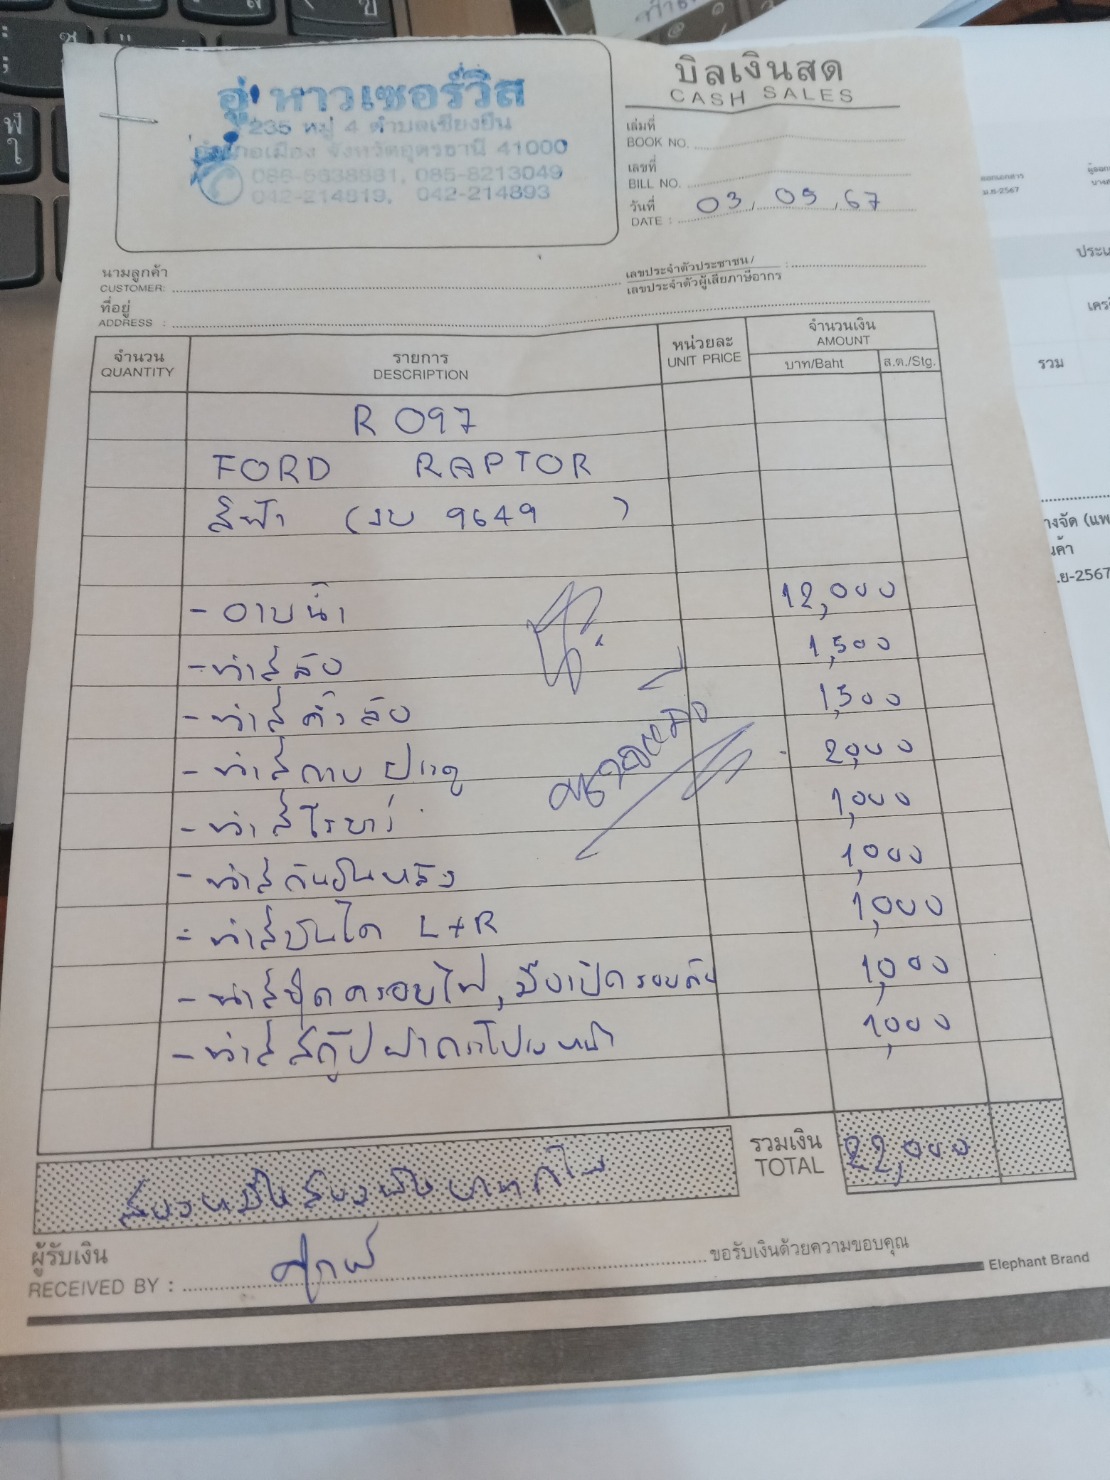 บิลเงินสด
CASH SALES
อู่ หาวเซอร์วิส
235 หมู่ 4 ตำบลเชียงยืน
อำเภอเมือง จังหวัดอุดรธานี 41000
085-8213049
042-214819, 042-214893
เล่มที่
BOOK NO.
เลขที่
BILL NO.
วันที่
DATE : 03, 09, 67
นามลูกค้า
CUSTOMER:
เลขประจำตัวประชาชน/
เลขประจำตัวผู้เสียภาษีอากร
ที่อยู่
ADDRESS :
จำนวน
QUANTITY
รายการ
DESCRIPTION
หน่วยละ
UNIT PRICE
จำนวนเงิน
AMOUNT
บาท/Baht ส.ต./Stg.
R 097
FORD RAPTOR
สีฟ้า (งบ 9649 )
- อาบน้ำ 12,000
- ทำสี 1,500
- ทำสี 1,500
- ทำสีกาบประตู 2,000
- ทำสีโรบาร์ 1,000
- ทำสีกันชนหลัง 1,000
- ทำสีบันได L+R 1,000
- ทำสีชุดครอบไฟ, มือเปิด 1,000
- ทำสีสกู๊ปฝากระโปรงหน้า 1,000
รวมเงิน
TOTAL 22,000
สองหมื่นสองพันบาทถ้วน
ผู้รับเงิน
RECEIVED BY :
ขอรับเงินด้วยความขอบคุณ
Elephant Brand
รวม